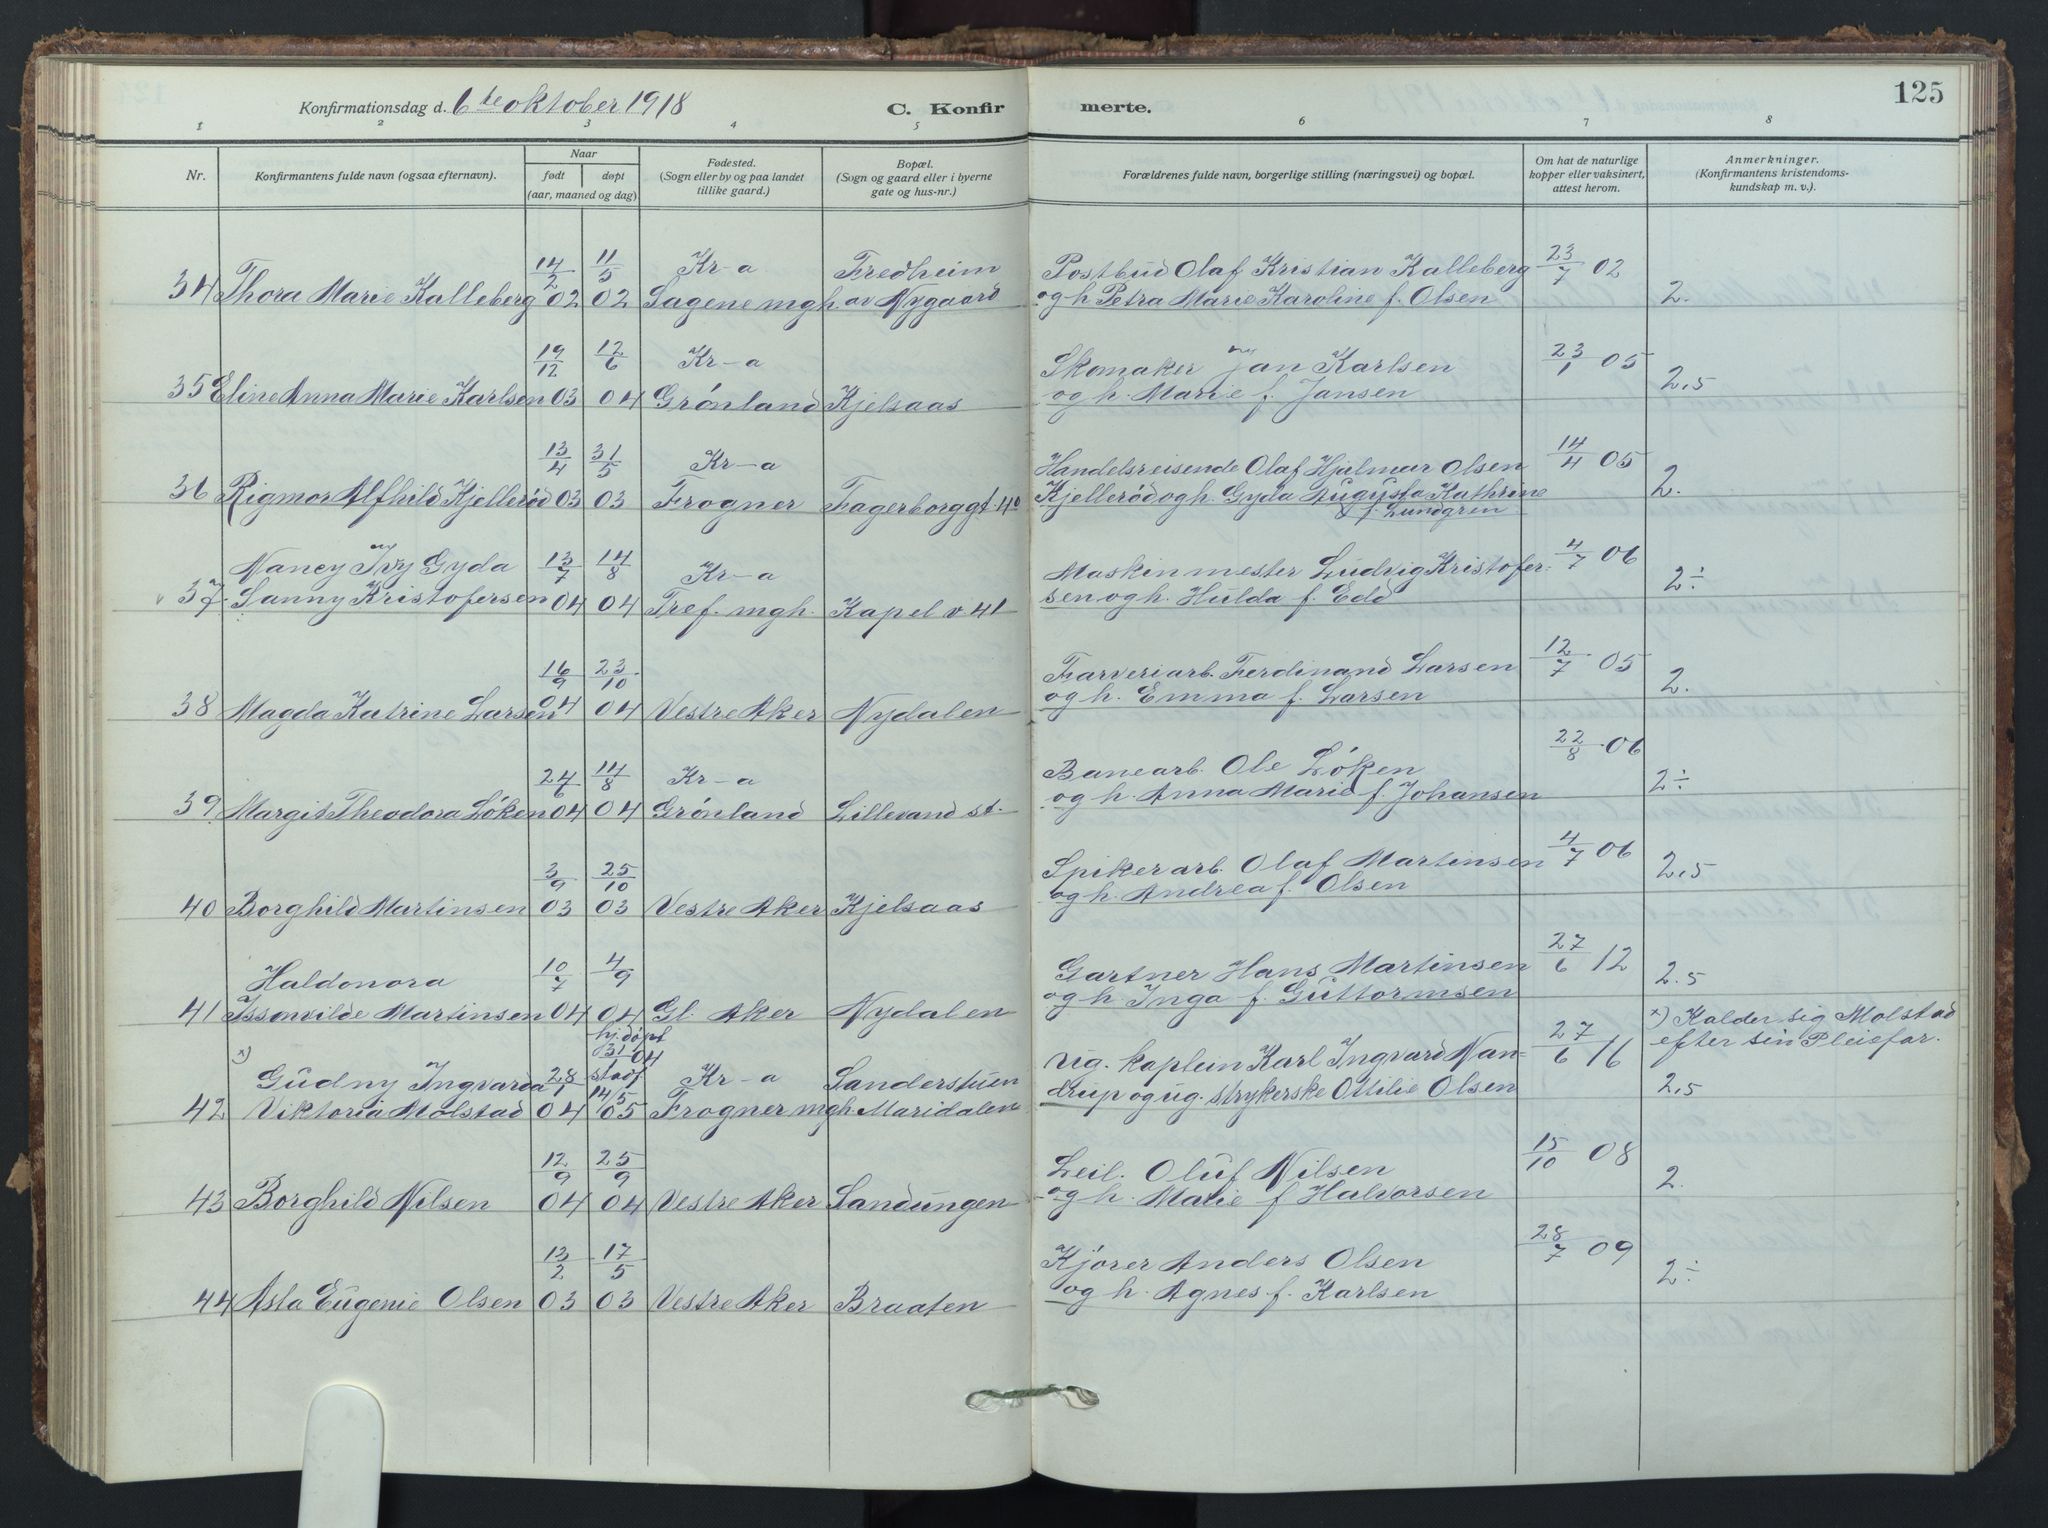 125
Konfirmationsdag d. 6te oktober 1918 C. Konfir merte.
1 2 3 4 5 6 7 8
Nr. Konfirmantens fulde navn (ogsaa efternavn). Naar født døpt (aar, maaned og dag) Fødested. (Sogn eller by og paa landet tillike gaard.) Bopæl. (Sogn og gaard eller i byerne gate og hus-nr.) Forældrenes fulde navn, borgerlige stilling (næringsvei) og bopæl. Om hat de naturlige kopper eller vaksinert, attest herom. Anmerkninger. (Konfirmantens kristendoms-kundskap m. v.).
14/2 11/5 Kr-a Fredheim Postbud Olaf Kristian Kalleberg 23/7 02
34 Thora Marie Kalleberg 02 02 Sagene mgh. av Nygaard og h. Petra Marie Karoline f. Olsen 2.
19/12 12/6 Kr-a Skomaker Jan Karlsen 23/1 05
35 Eline Anna Marie Karlsen 03 04 Grønland Kjelsaas og h. Marie f. Jansen 2,5
13/4 31/5 Kr-a Handelsreisende Olaf Hjalmar Olsen 14/4 05
36 Rigmor Alfhild Kjellerød 03 03 Frogner Fagerborggt. 40 Kjellerød og h. Gyda Augusta Kathrine 2.
f. Lundgren
Nancy Ivy Gyda 13/7 14/8 Kr-a Maskinmester Ludvig Kristofer- 4/7 06
37 Sanny Kristofersen 04 04 Tref. mgh. Kapel v 41 sen og h. Hulda f. Edd 2÷
16/9 23/10 Farveriarb. Ferdinand Larsen 12/7 05
38 Magda Katrine Larsen 04 04 Vestre Aker Nydalen og h. Emma f. Larsen 2.
24/6 14/8 Kr-a Banearb. Ole Løken 22/8 06
39 Margit Theodora Løken 04 04 Grønland Lillevand st. og h. Anna Marie f. Johansen 2÷
3/9 25/10 Spikerarb. Olaf Martinsen 4/7 06
40 Borghild Martinsen 03 03 Vestre Aker Kjelsaas og h. Andrea f. Olsen 2,5
Haldonora 10/7 4/9 Gartner Hans Martinsen 27/6 12
41 Issonvilde Martinsen 04 04 Gl. Aker Nydalen og h. Inga f. Guttormsen 2.5
hj.døpt 31/1 04 x) Kalder sig Molstad
x) Gudny Ingvarda 28/1 stadf. Kr-a Sanderstuen Ug. kaptein Karl Ingvard Nan- 27/6 16 efter sin Pleiefar.
42 Viktoria Molstad 04 14/5 05 Frogner mgh. Maridalen drup og ug. strykerske Ottilie Olsen 2,5
12/9 25/9 Leil. Oluf Nilsen 15/10 08
43 Borghild Nilsen 04 04 Vestre Aker Sandungen og h. Marie f. Halvorsen 2.
13/2 17/5 Kjører Anders Olsen 28/7 09
44 Asta Eugenie Olsen 03 03 Vestre Aker Braaten og h. Agnes f. Karlsen 2÷